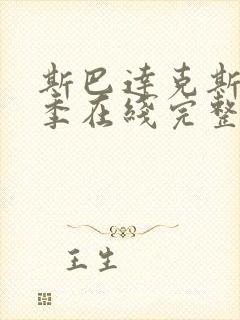 斯巴达克斯
季在线完整
王生